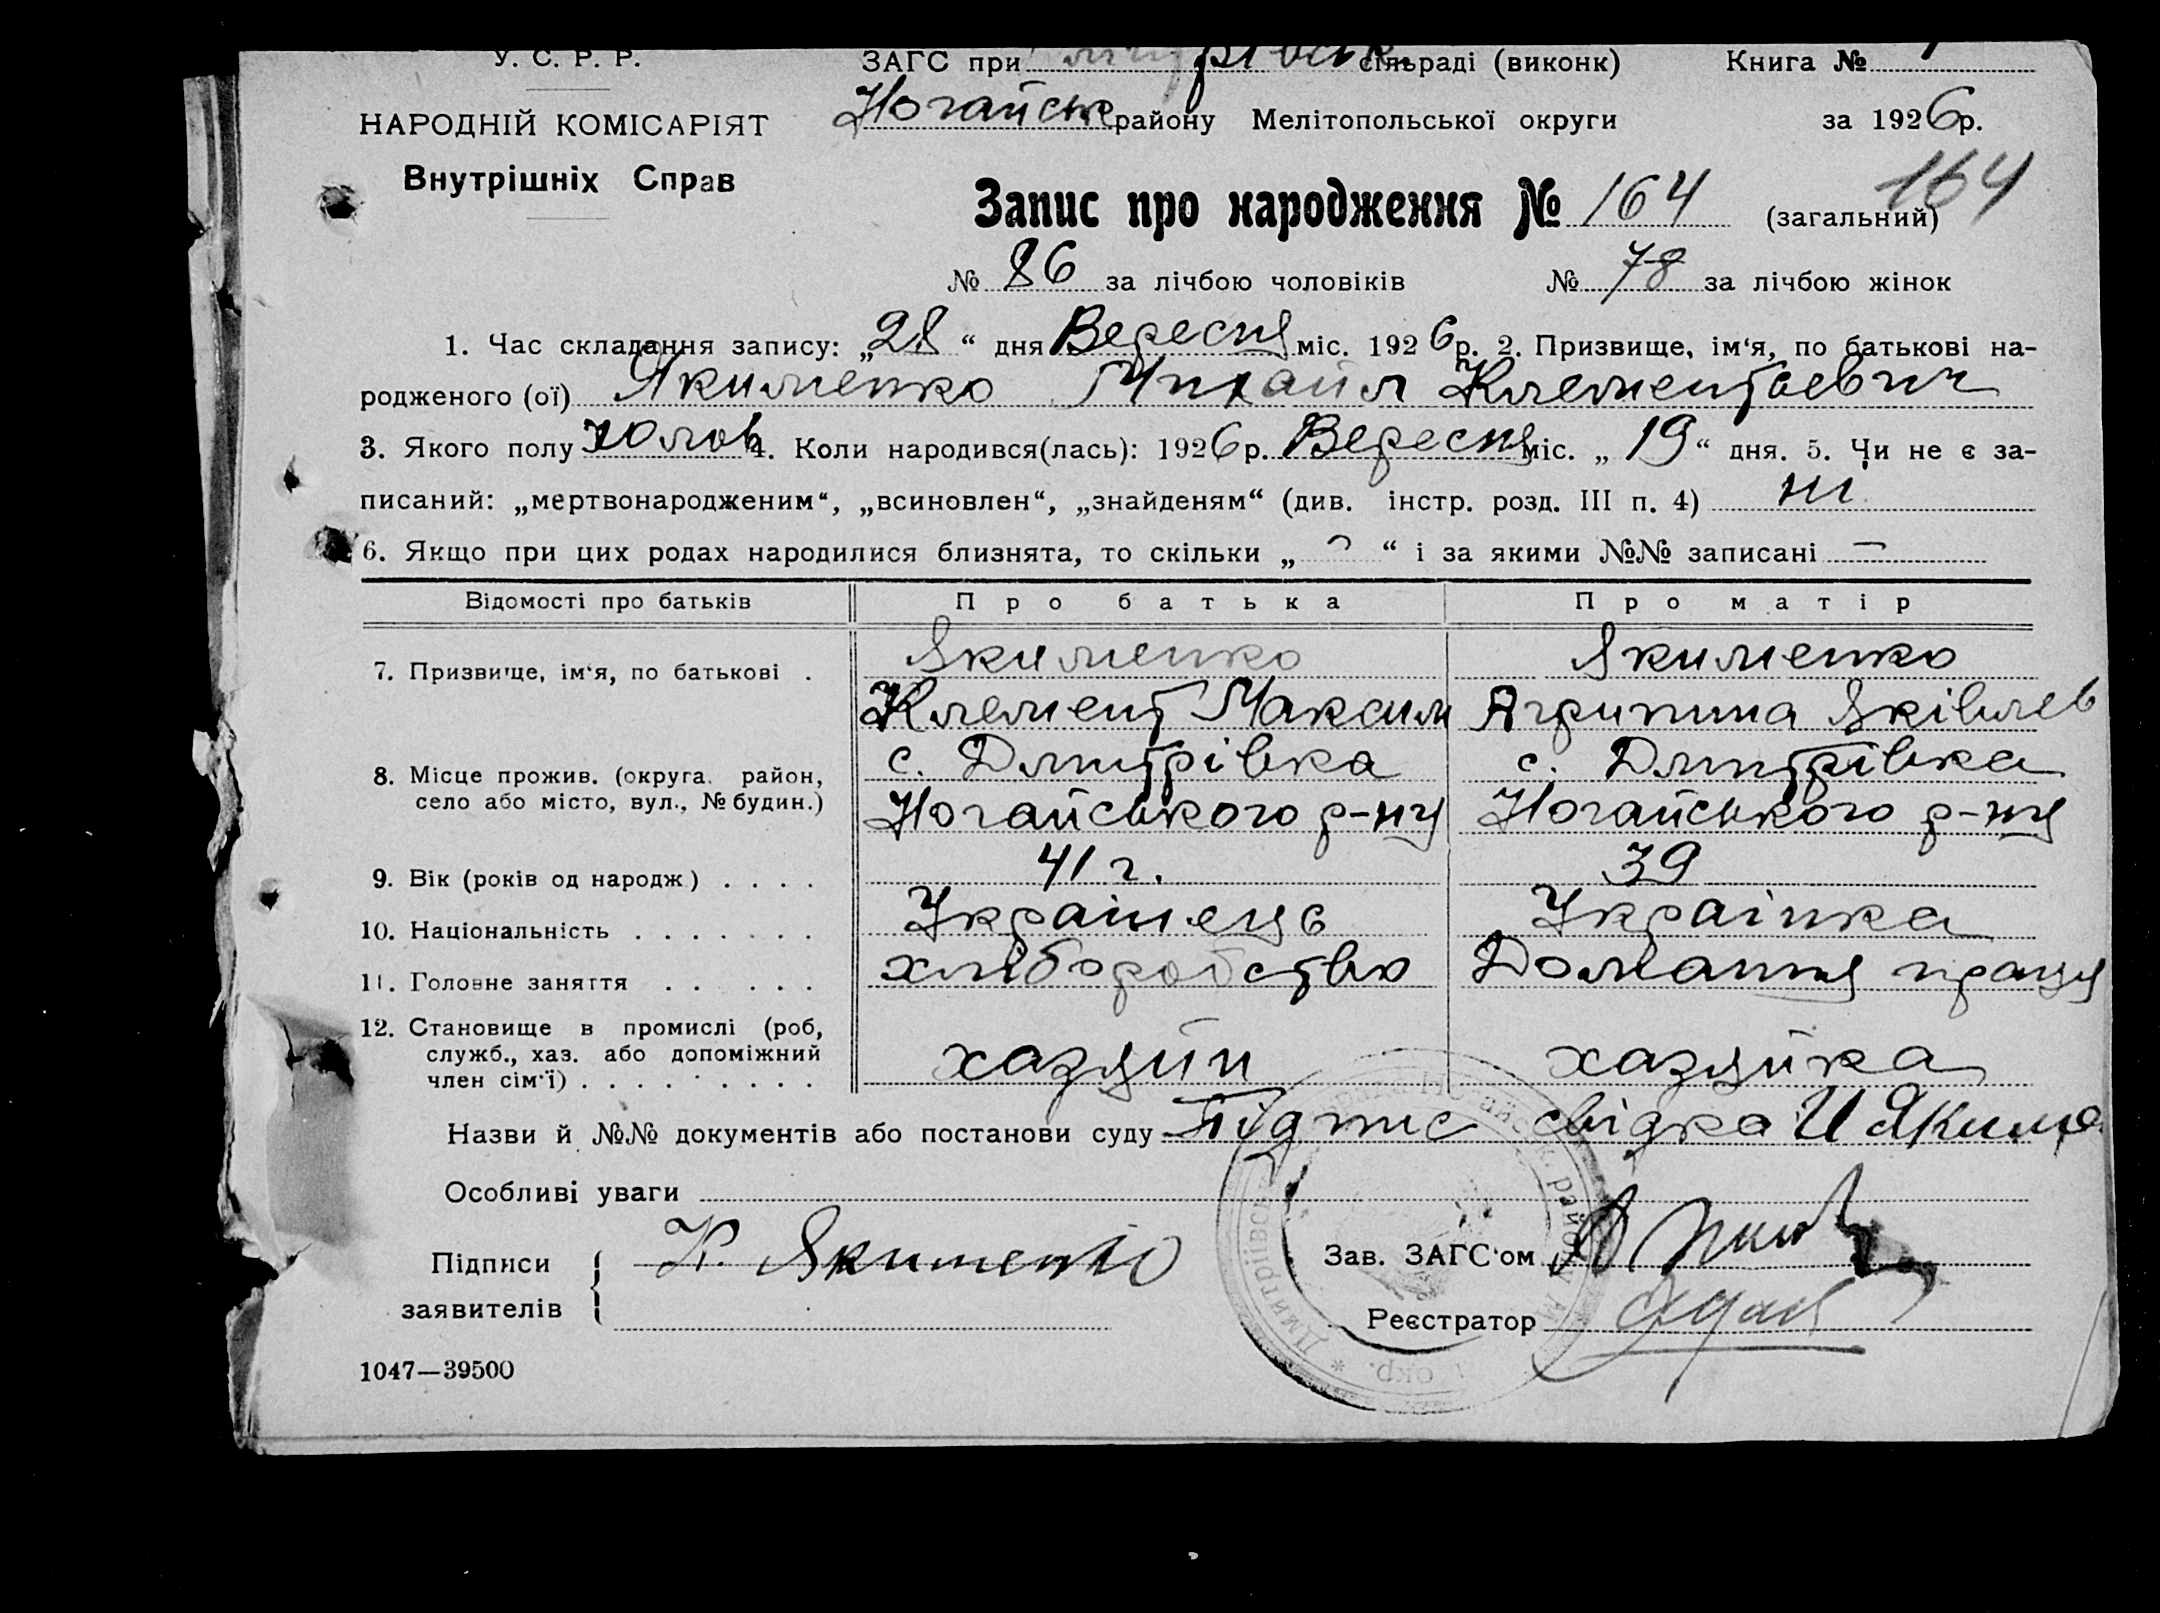 У. С. Р. Р.
ЗАГС при сільраді (виконк) Книга №
НАРОДНІЙ КОМІСАРІЯТ Ногайськ району Мелітопольської округи за 1926р.
Внутрішніх Справ
Запис про народження № 164 (загальний) 164
№ 86 за лічбою чоловіків № 78 за лічбою жінок
1. Час складання запису: „28“ дня Вересня міс. 1926р. 2. Призвище, ім‘я, по батькові на-
родженого (ої) Якименко Михайл Клементьевич
3. Якого полу чолов 4. Коли народився(лась): 1926р. Вересня міс. „19“ дня. 5. Чи не є за-
писаний: „мертвонародженим“, „всиновлен“, „знайденям“ (див. інстр. розд. III п. 4) ні
6. Якщо при цих родах народилися близнята, то скільки „ “ і за якими №№ записані —
Відомості про батьків Про батька Про матір
7. Призвище, ім‘я, по батькові . Якименко Якименко
Клемент Максим Агрипина Яківлев
8. Місце прожив. (округа. район, с. Дмитрівка с. Дмитрівка
село або місто, вул., № будин.) Ногайського р-ну Ногайського р-ну
9. Вік (років од народж) . . . . 41 г. 39
10. Національність . . . . . . . Українець Українка
11. Головне заняття . . . . . хліборобство Домашня праця
12. Становище в промислі (роб,
служб., хаз. або допоміжний хазяйн хазяйка
член сім‘ї) . . . . . . . . .
Назви й №№ документів або постанови суду Підпис свідка И Якиме
Особливі уваги
Підписи К. Якименко Зав. ЗАГС‘ом
заявителів Реєстратор
1047—39500